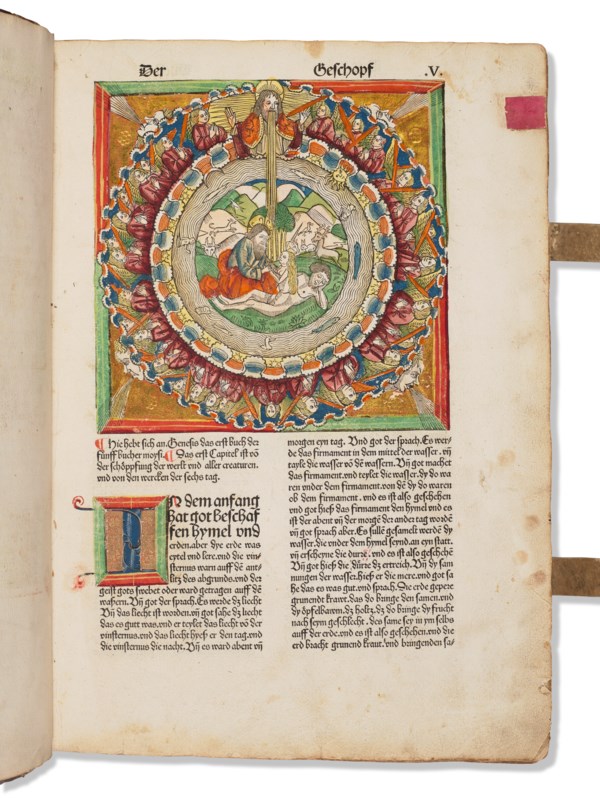 Der Geschopf .V.
Hie hebt sich an. Genesis das erst buch der
fünff bucher moysi. Das erst Capitel ist vō
der schöpffung der werlt vnd aller creaturen.
vnd von den wercken der sechs tag.
IN dem anfang
hat got beschaf
fen hymel vnd
erden. aber dye erde was
eytel vnd lere. vnd die vin-
sternus warn auff dē ant-
litz des abgrunds. vnd der
geist gots swebet oder ward getragen auff dē
wassern. Vn̄ got der sprach. Es werde dz liecht
Vn̄ das liecht ist worden. vn̄ got sahe dz liecht
das es gutt was. vnd er teylet das liecht vō der
vinsternus. vnd das liecht hyeß er den tag. vnd
die vinsternus die nacht. Vn̄ es ward abent vn̄
morgen eyn tag. Vnd got der sprach. Es wer-
de das firmament in dem mittel der wasser. vn̄
tayle die wasser vō dē wassern. Vn̄ got machet
das firmament. vnd teylet die wasser. dy do wa
ren vnder dem firmament. von dē dy do waren
ob dem firmament. vnd es ist also geschehen
vnd got hieß das firmament den hymel vnd es
ist der abent vn̄ der morgē der ander tag wordē
vn̄ got sprach aber. Es sullē gesamelt werdē dy
wasser. die vnder dem hymel seynd. an eyn statt.
vn̄ erscheyne die dürrē. vnd es ist also geschehē
Vn̄ got hieß die dürre dz ertreich. Vn̄ dy sam
nungen der wasser. hieß er die mere. vnd got sa
he das es was gut. vnd sprach. Die erde gepere
grunendt kraut. das do bringe den samen. vnd
dy öpffelbawm. dz holtz. dz do bringe dy frucht
nach seym geschlecht. des same sey in ym selbs
auff der erde. vnd es ist also geschehen. vnd die
erd bracht grunend kraut. vnd bringenden sa-